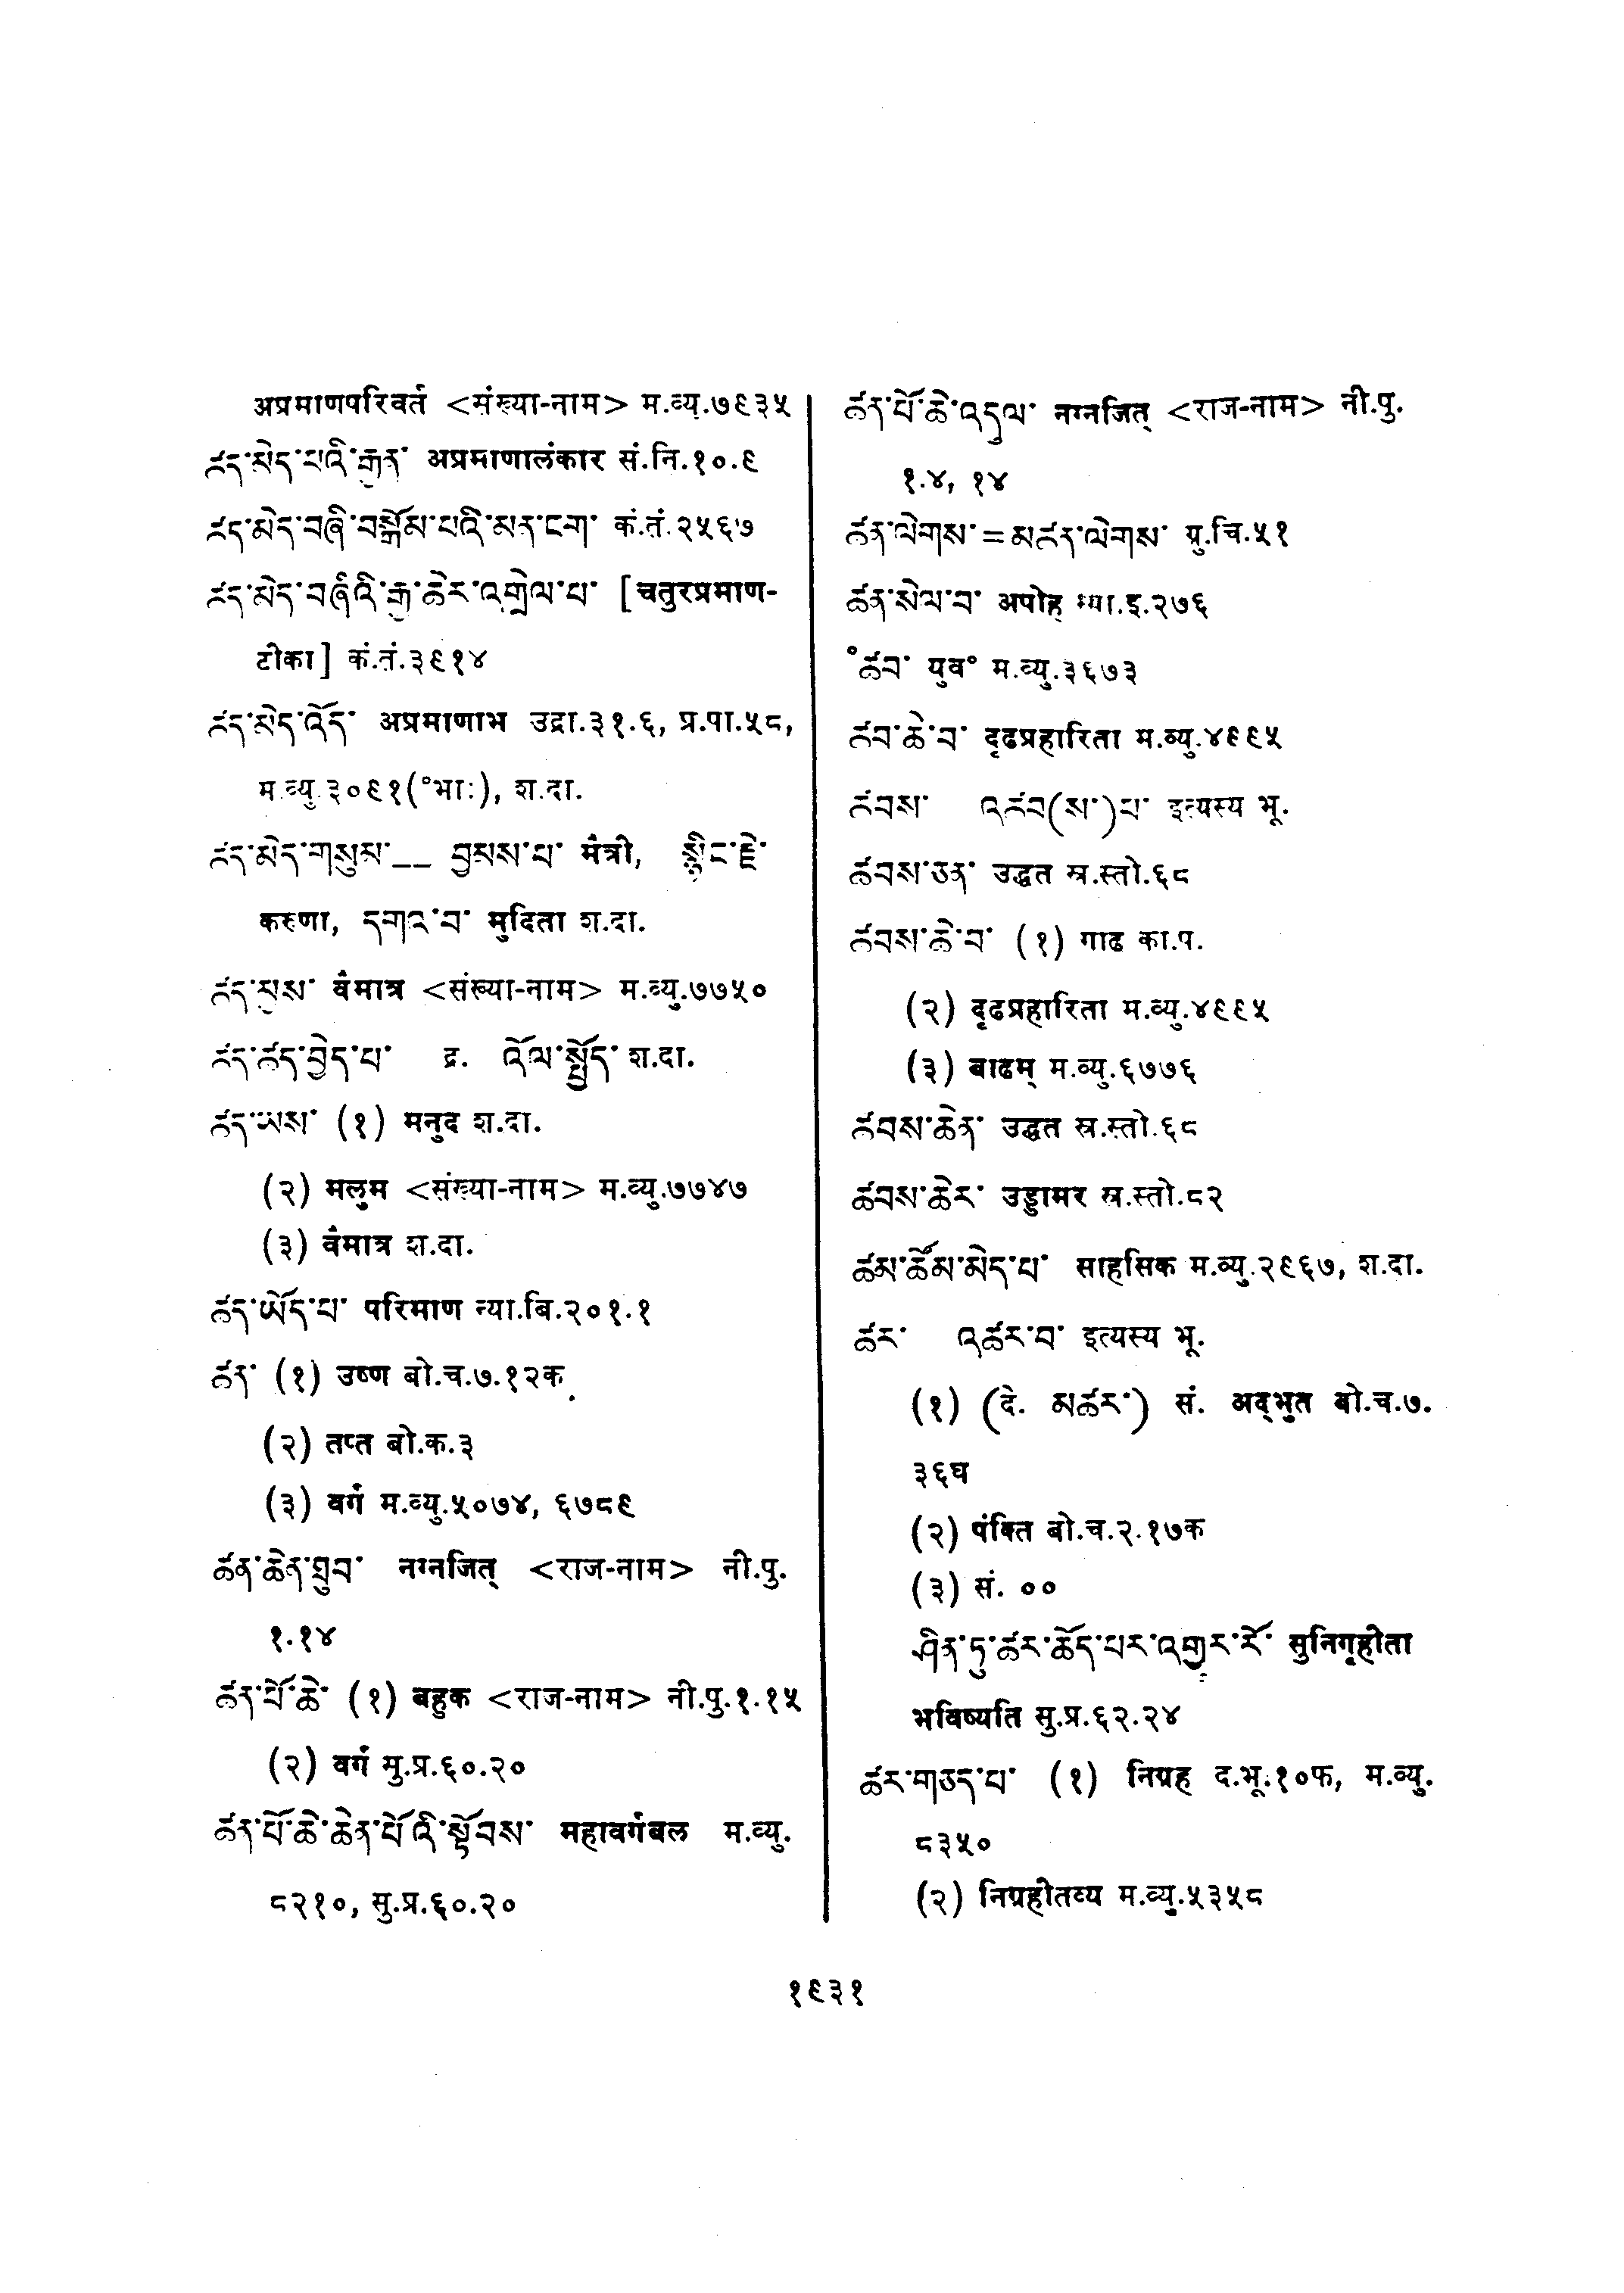 अप्रमाणपरिवर्त <संख्या-नाम> म.व्यु.७९३५
ཚད་མེད་པའི་རྒྱན་ अप्रमाणालंकार सं.नि.१०.९
ཚད་མེད་བཞི་བསྒོམ་པའི་མན་ངག་ कं.तं.२५६७
ཚད་མེད་བཞིའི་རྒྱ་ཆེར་འགྲེལ་པ་ [चतुरप्रमाण-
टीका] कं.तं.३९१४
ཚད་མེད་འོད་ अप्रमाणाभ उद्रा.३१.६, प्र.पा.५८,
म.व्यु.३०९१(°भाः), श.दा.
ཚད་མེད་གསུམ་__ བྱམས་པ་ मैत्री, སྙིང་རྗེ་
करुणा, དགའ་བ་ मुदिता श.दा.
ཚད་སྲས་ वैमात्र <संख्या-नाम> म.व्यु.७७५०
ཚད་ཚད་བྱེད་པ་ द्र. འོལ་སྤྱོད་ श.दा.
ཚད་ཡས་ (१) मनुद श.दा.
(२) मलुम <संख्या-नाम> म.व्यु.७७४७
(३) वैमात्र श.दा.
ཚད་ཡོད་པ་ परिमाण न्या.बि.२०१.१
ཚན་ (१) उष्ण बो.च.७.१२क
(२) तप्त बो.क.३
(३) वर्ग म.व्यु.५०७४, ६७८९
ཚན་ཆེན་གྲུབ་ नग्नजित् <राज-नाम> नी.पु.
१.१४
ཚན་པོ་ཆེ་ (१) बहुक <राज-नाम> नी.पु.१.१५
(२) वर्ग सु.प्र.६०.२०
ཚན་པོ་ཆེ་ཆེན་པོའི་སྟོབས་ महावर्गबल म.व्यु.
८२१०, सु.प्र.६०.२०
ཚན་པོ་ཆེ་འདུལ་ नग्नजित् <राज-नाम> नी.पु.
१.४, १४
ཚན་ལེགས་=མཚན་ལེགས་ यु.चि.५१
ཚན་སེལ་བ་ अपोह न्या.इ.२७६
°ཚབ་ युव° म.व्यु.३६७३
ཚབ་ཆེ་བ་ दृढप्रहारिता म.व्यु.४९९५
ཚབས་ འཚབ(ས་)པ་ इत्यस्य भू.
ཚབས་ཅན་ उद्धत स्र.स्तो.६८
ཚབས་ཆེ་བ་ (१) गाढ का.प.
(२) दृढप्रहारिता म.व्यु.४९९५
(३) बाढम् म.व्यु.६७७६
ཚབས་ཆེན་ उद्धत स्र.स्तो.६८
ཚབས་ཆེར་ उड्डामर स्र.स्तो.८२
ཚམ་ཚོམ་མེད་པ་ साहसिक म.व्यु.२९६७, श.दा.
ཚར་ འཚར་བ་ इत्यस्य भू.
(१) (दे. མཚར་) सं. अद्भुत बो.च.७.
३६घ
(२) पंक्ति बो.च.२.१७क
(३) सं. ००
ཤིན་ཏུ་ཚར་ཆོད་པར་འགྱུར་རོ་ सुनिगृहीता
भविष्यति सु.प्र.६२.२४
ཚར་གཅད་པ་ (१) निग्रह द.भू.१०फ, म.व्यु.
८३५०
(२) निग्रहीतव्य म.व्यु.५३५८
१९३१